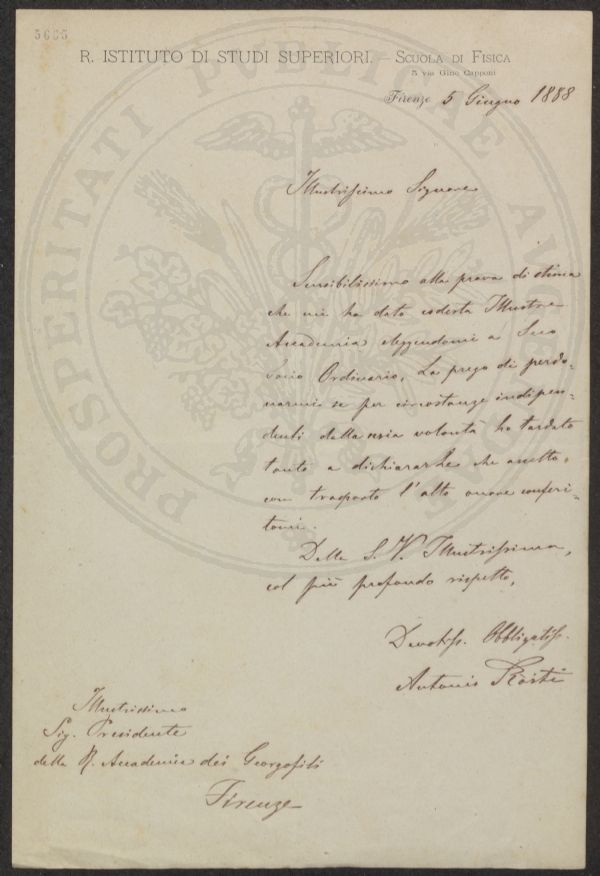 5665
R. ISTITUTO DI STUDI SUPERIORI. — SCUOLA DI FISICA
5 via Gino Capponi
Firenze 5 Giugno 1888
Illustrissimo Signore
Sensibilissimo alla prova di stima
che mi ha dato codesta Illustre
Accademia eleggendomi a Suo
Socio Ordinario, La prego di perdo-
narmi se per circostanze indipen-
denti dalla mia volontà ho tardato
tanto a dichiararLe che accetto,
con trasporto l'alto onore conferi-
tomi.
Della S. V. Illustrissima,
col più profondo rispetto,
Devotiss. Obbligatiss.
Antonio Ròiti
Illustrissimo
Sig. Presidente
della R. Accademia dei Georgofili
Firenze
PROSPERITATI PUBLICAE AUGENDAE